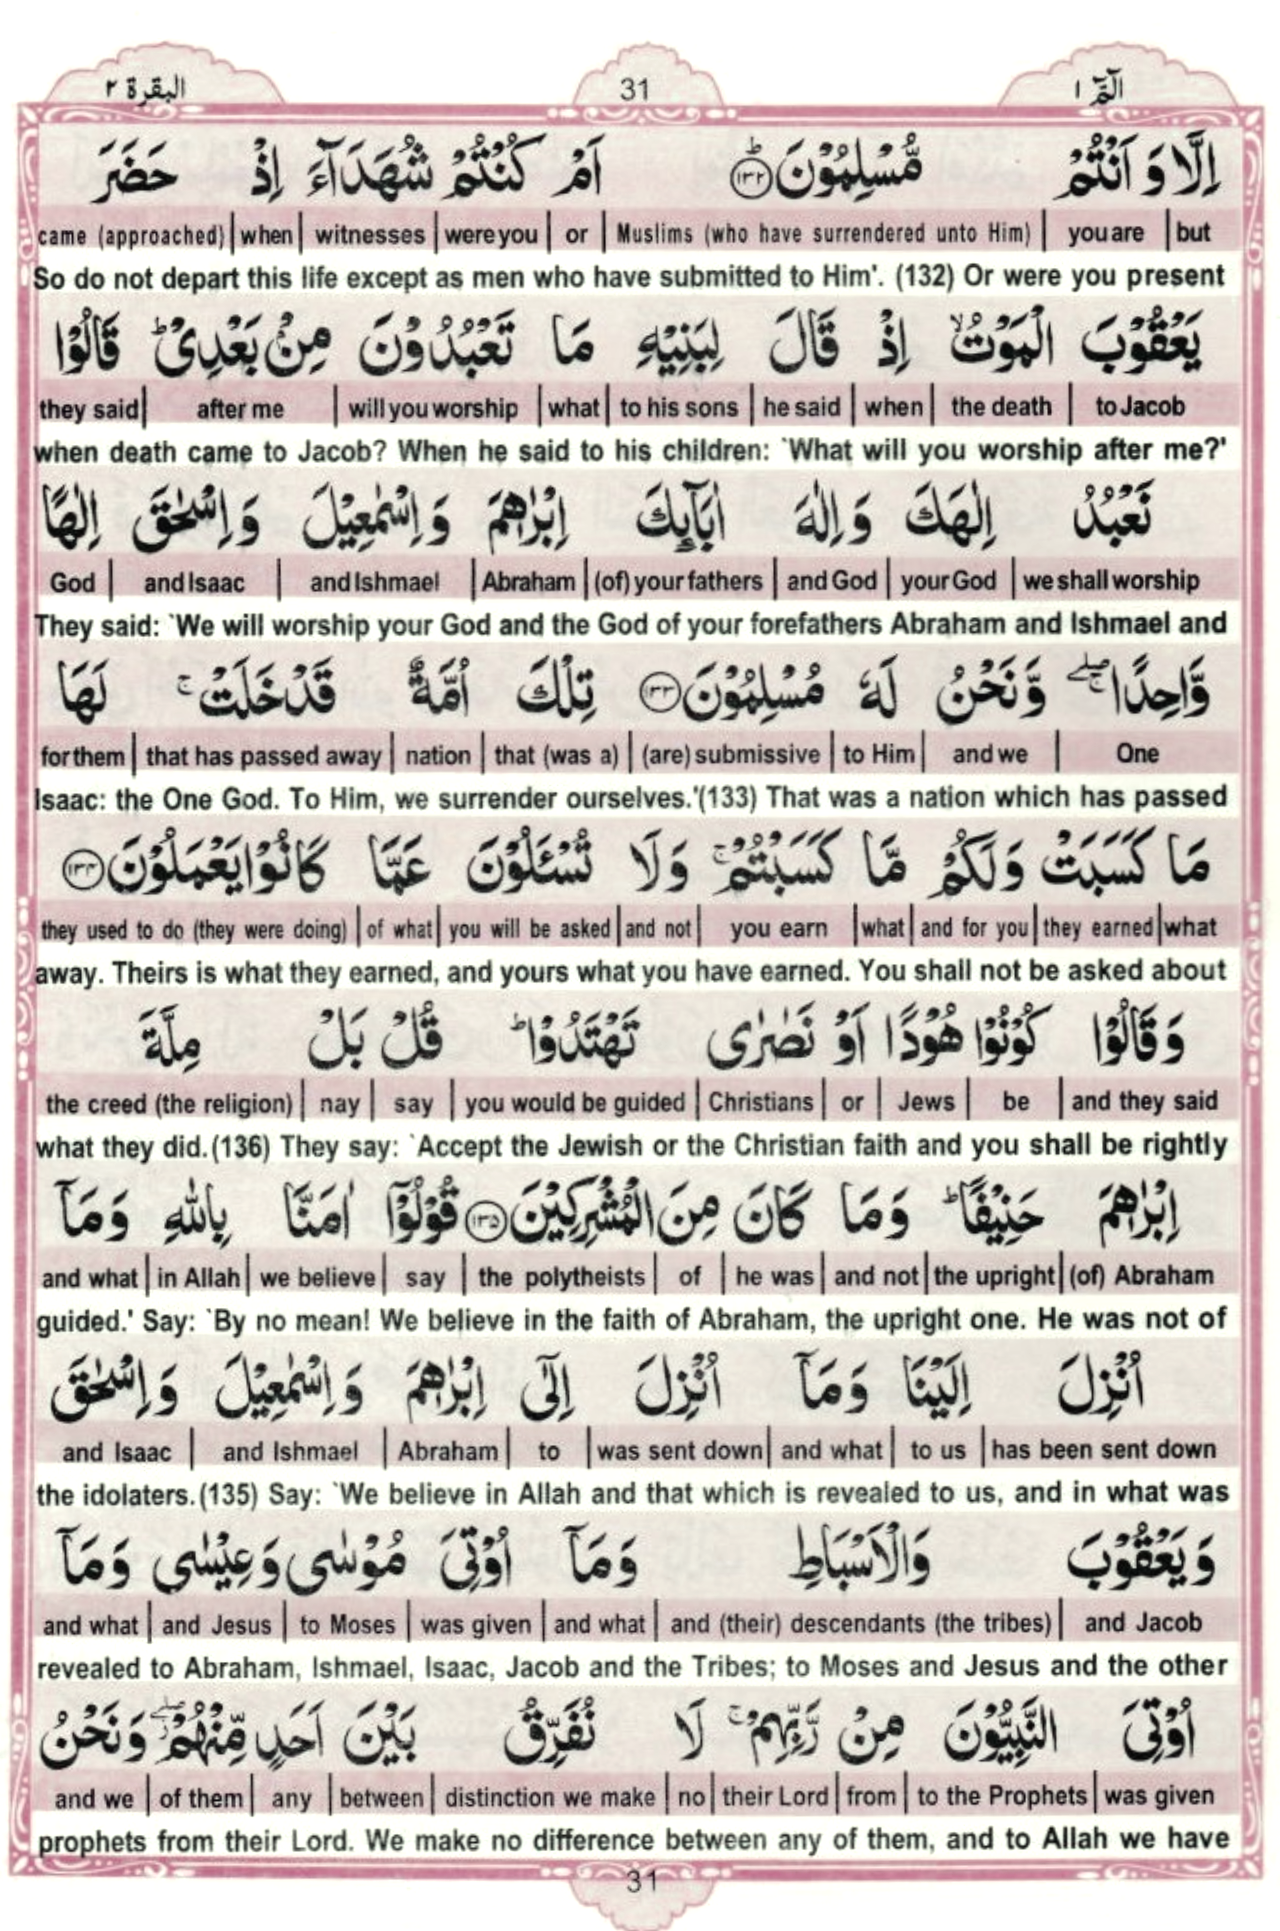 البقرة ٢ 31 الٓمّٓ ١
اِلَّا وَ اَنْتُمْ مُّسْلِمُوْنَ ؕ﴿١٣٢﴾ اَمْ كُنْتُمْ شُهَدَآءَ اِذْ حَضَرَ
came (approached) | when | witnesses | were you | or | Muslims (who have surrendered unto Him) | you are | but
So do not depart this life except as men who have submitted to Him'. (132) Or were you present
يَعْقُوْبَ الْمَوْتُ ۙ اِذْ قَالَ لِبَنِيْهِ مَا تَعْبُدُوْنَ مِنْۢ بَعْدِيْ ؕ قَالُوْا
they said | after me | will you worship | what | to his sons | he said | when | the death | to Jacob
when death came to Jacob? When he said to his children: `What will you worship after me?'
نَعْبُدُ اِلٰهَكَ وَ اِلٰهَ اٰبَآىِٕكَ اِبْرٰهٖمَ وَ اِسْمٰعِيْلَ وَ اِسْحٰقَ اِلٰهًا
God | and Isaac | and Ishmael | Abraham | (of) your fathers | and God | your God | we shall worship
They said: `We will worship your God and the God of your forefathers Abraham and Ishmael and
وَّاحِدًا ۖۚ وَّ نَحْنُ لَهٗ مُسْلِمُوْنَ ﴿١٣٣﴾ تِلْكَ اُمَّةٌ قَدْ خَلَتْ ۚ لَهَا
for them | that has passed away | nation | that (was a) | (are) submissive | to Him | and we | One
Isaac: the One God. To Him, we surrender ourselves.'(133) That was a nation which has passed
مَا كَسَبَتْ وَ لَكُمْ مَّا كَسَبْتُمْ ۚ وَ لَا تُسْـَٔلُوْنَ عَمَّا كَانُوْا يَعْمَلُوْنَ ﴿١٣٤﴾
they used to do (they were doing) | of what | you will be asked | and not | you earn | what | and for you | they earned | what
away. Theirs is what they earned, and yours what you have earned. You shall not be asked about
وَ قَالُوْا كُوْنُوْا هُوْدًا اَوْ نَصٰرٰى تَهْتَدُوْا ؕ قُلْ بَلْ مِلَّةَ
the creed (the religion) | nay | say | you would be guided | Christians | or | Jews | be | and they said
what they did.(136) They say: `Accept the Jewish or the Christian faith and you shall be rightly
اِبْرٰهٖمَ حَنِيْفًا ؕ وَ مَا كَانَ مِنَ الْمُشْرِكِيْنَ ﴿١٣٥﴾ قُوْلُوْٓا اٰمَنَّا بِاللّٰهِ وَ مَآ
and what | in Allah | we believe | say | the polytheists | of | he was | and not | the upright | (of) Abraham
guided.' Say: `By no mean! We believe in the faith of Abraham, the upright one. He was not of
اُنْزِلَ اِلَيْنَا وَ مَآ اُنْزِلَ اِلٰٓى اِبْرٰهٖمَ وَ اِسْمٰعِيْلَ وَ اِسْحٰقَ
and Isaac | and Ishmael | Abraham | to | was sent down | and what | to us | has been sent down
the idolaters.(135) Say: `We believe in Allah and that which is revealed to us, and in what was
وَ يَعْقُوْبَ وَ الْاَسْبَاطِ وَ مَآ اُوْتِيَ مُوْسٰى وَ عِيْسٰى وَ مَآ
and what | and Jesus | to Moses | was given | and what | and (their) descendants (the tribes) | and Jacob
revealed to Abraham, Ishmael, Isaac, Jacob and the Tribes; to Moses and Jesus and the other
اُوْتِيَ النَّبِيُّوْنَ مِنْ رَّبِّهِمْ ۚ لَا نُفَرِّقُ بَيْنَ اَحَدٍ مِّنْهُمْ ۖ وَ نَحْنُ
and we | of them | any | between | distinction we make | no | their Lord | from | to the Prophets | was given
prophets from their Lord. We make no difference between any of them, and to Allah we have
31